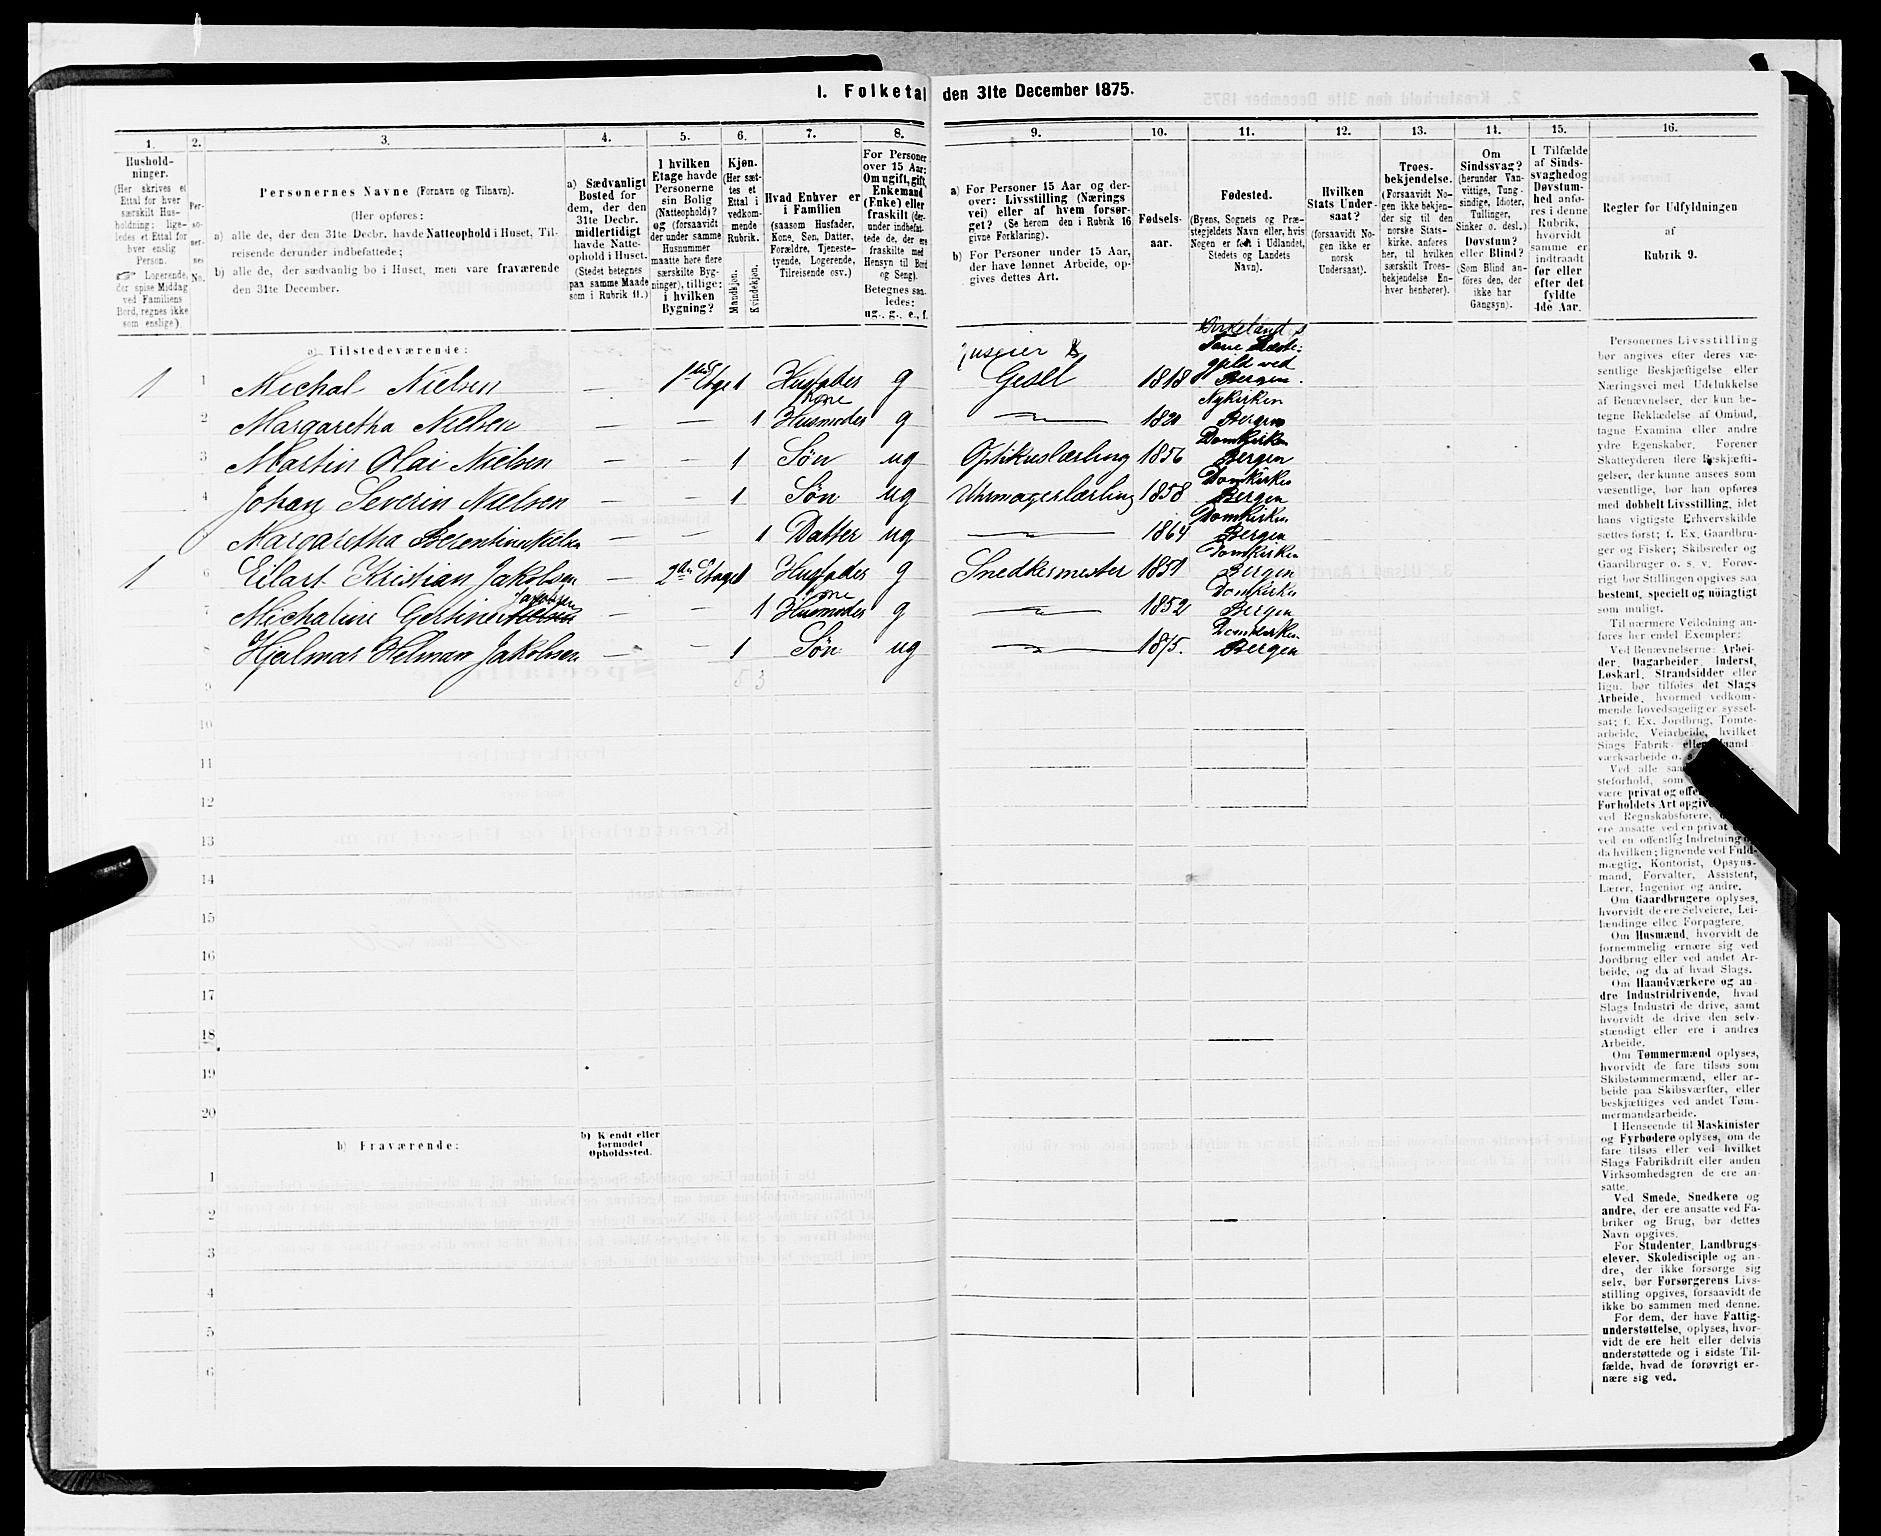 1. Folketal den 31te December 1875.
1. 2. 3. 4. 5. 6. 7. 8. 9. 10. 11. 12. 13. 14. 15. 16.
Hushold-
ninger.
(Her skrives et
Ettal for hver
særskilt Hus-
holdning; lige-
ledes et Ettal for
hver enslig
Person.
Logerende,
der spise Middag
ved Familiens
Bord, regnes ikke
som enslige).
Per-
so-
ner-
nes
No.
Personernes Navne (Fornavn og Tilnavn).
(Her opføres:
a) alle de, der den 31te Decbr. havde Natteophold i Huset, Til-
reisende derunder indbefattede;
b) alle de, der sædvanlig bo i Huset, men vare fraværende
den 31te December.
a) Sædvanligt
Bosted for
dem, der den
31te Decbr.
midlertidigt
havde Natte-
ophold i Huset.
(Stedet betegnes
paa samme Maade
som i Rubrik 11.)
I hvilken
Etage havde
Personerne
sin Bolig
(Natteophold)?
og (forsaavidt
der under samme
Husnummer
maatte høre flere
særskilte Byg-
ninger), tillige:
i hvilken
Bygning?
Kjøn.
(Her sæt-
tes et
Ettal i
vedkom-
mende
Rubrik.
Mandkjøn.
Kvindekjøn.
Hvad Enhver er
i Familien
(saasom Husfader,
Kone, Søn, Datter,
Forældre, Tjeneste-
tyende, Logerende,
Tilreisende osv.)
For Personer
over 15 Aar:
Om ugift, gift,
Enkemand
(Enke) eller
fraskilt (der-
under indbefat-
tede de, der ere
fraskilte med
Hensyn til Bord
og Seng).
Betegnes saa-
ledes:
ug., g., e., f.
a) For Personer 15 Aar og der-
over: Livsstilling (Nærings
vei) eller af hvem forsør-
get? (Se herom den i Rubrik 16
givne Forklaring).
b) For Personer under 15 Aar,
der have lønnet Arbeide, op-
gives dettes Art.
Fødsels-
aar.
Fødested.
(Byens, Sognets og Præ-
stegjeldets Navn eller, hvis
Nogen er født i Udlandet,
Stedets og Landets
Navn).
Hvilken
Stats Under-
saat?
(forsaavidt No-
gen ikke er
norsk
Undersaat).
Troes-
bekjendelse.
(Forsaavidt No-
gen ikke bekjen-
der sig til den
norske Stats-
kirke, anføres
her, til hvilken
særskilt Troes-
bekjendelse En-
hver henhører).
Om
Sindssvag?
(herunder Van-
vittige, Tung-
sindige, Idioter,
Tullinger,
Sinker o. desl.)
Døvstum?
eller Blind?
(Som Blind an-
føres den, der
ikke har
Gangsyn).
I Tilfælde
af Sinds-
svaghed og
Døvstum-
hed anfø-
res i denne
Rubrik,
hvorvidt
samme er
indtraadt
før eller
efter det
fyldte
4de Aar.
Regler for Udfyldningen
af
Rubrik 9.
a) Tilstedeværende:
Huseier &
Birkelands
Fane Præste-
gjeld ved
1 1 Michal Nielsen — 1ste Etage 1 Husfader g Gesel 1818 Bergen.
Kone Nykirken
2 Margaretha Nielsen — — 1 Husmoder g — 1820 Bergen
Domkirken
3 Martin Olai Nielsen — — 1 Søn ug Optikuslærling 1856 Bergen
Domkirken
4 Johan Severin Nielsen — — 1 Søn ug Uhrmagerlærling 1858 Bergen
Domkirken
Margaretha Berentine Nielsen — — 1 Datter ug — 1864 Bergen
Domkirken
1 6 Eilart Kristian Jakobsen — 2den Etage 1 Husfader g Snedkermester 1851 Bergen
Jakobsen Kone Domkirken
7 Michaline Gertine Nielsen — — 1 Husmoder g — 1852 Bergen
Domkirken
Hjalmar Helman Jakobsen — — 1 Søn ug — 1875. Bergen
9 5 3
10
11
12
13
14
15
16
17
18
19
20
b) Fraværende:
b) Kjendt eller
formodet
Opholdssted.
1
2
3
4
5
6
Personernes Livsstilling
bør angives efter deres væ-
sentlige Beskjæftigelse eller
Næringsvei med Udelukkelse
af Benævnelser, der kun be-
tegne Beklædelse af Ombud,
tagne Examina eller andre
ydre Egenskaber. Forener
Skatteyderen flere Beskjæfti-
gelser, der kunne ansees som
væsentlige, bør han opføres
med dobbelt Livsstilling, idet
hans vigtigste Erhvervskilde
sættes først; f. Ex. Gaardbru-
ger og Fisker; Skibsreder og
Gaardbruger o. s. v. Forøv-
rigt bør Stillingen opgives saa
bestemt, specielt og nøiagtigt
som muligt.
Til nærmere Veiledning an-
føres her endel Exempler:
Ved Benævnelserne: Arbei-
der, Dagarbeider, Inderst,
Løskarl, Strandsidder eller
lign. bør tilføies det Slags
Arbeide, hvormed vedkom-
mende hovedsagelig er syssel-
sat; f. Ex. Jordbrug, Tomte-
arbeide, Veiarbeide, hvilket
Slags Fabrik- eller Haand-
værksarbeide o. s.
Ved alle saa
steforhold, som
være privat og off
Forholdets Art opgiv
ved Regnskabsførere,
ere ansatte ved en privat
ved en offentlig Indretning
da hvilken; lignende ved Fuld-
mægtig, Kontorist, Opsyns-
mand, Forvalter, Assistent,
Lærer, Ingeniør og andre.
Om Gaardbrugere oplyses,
hvorvidt de ere Selveiere, Lei-
lændinge eller Forpagtere.
Om Husmænd, hvorvidt de
fornemmelig ernære sig ved
Jordbrug eller ved andet Ar-
beide, og da af hvad Slags.
Om Haandværkere og an-
dre Industridrivende, hvad
Slags Industri de drive, samt
hvorvidt de drive den selv-
stændigt eller ere i andres
Arbeide.
Om Tømmermænd oplyses,
hvorvidt de fare tilsøs som
Skibstømmermænd, eller ar-
beide paa Skibsværfter, eller
beskjæftiges ved andet Tøm-
mermandsarbeide.
I Henseende til Maskinister
og Fyrbødere oplyses, om de
fare tilsøs eller ved hvilket
Slags Fabrikdrift eller anden
Virksomhedsgren de ere an-
satte.
Ved Smede, Snedkere og
andre, der ere ansatte ved Fa-
briker og Brug, bør dettes
Navn opgives.
For Studenter, Landbrugs-
elever, Skoledisciple og an-
dre, der ikke forsørge sig
selv, bør Forsørgerens Livs-
stilling opgives, forsaavidt de
ikke bo sammen med denne.
For dem, der have Fattig-
understøttelse, oplyses, hvor-
vidt de ere helt eller delvis
understøttede og i sidste Til-
fælde, hvad de forøvrigt er-
nære sig ved.